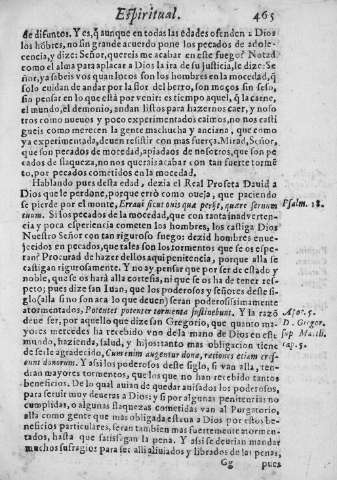 Espiritual. 465
de difuntos. Y es, q̃ aunque en todas las edades ofenden a Dios
los hõbres, no sin grande acuerdo pone los pecados de adole-
cencia, y dize: Señor, quereis me acabar en este fuego? Notad
como el alma para aplacar a Dios la ira de su justicia, le dize: Se
ñor, ya sabeis vos quan locos son los hombres en la mocedad, q̃
solo cuidan de andar por la flor del berro, son moços sin seso,
sin pensar en lo que està por venir: es tiempo aquel, q̃ la carne,
el mundo, el demonio, andan listos para hazernos caer, y noso-
tros como nueuos y poco experimentados caimos, no nos casti
gueis como merecen la gente machucha y anciana, que como
ya experimentada, deuen resistir con mas fuerça. Mirad, Señor,
que son pecados de mocedad, apiadaos de nosotros, que son pe
cados de flaqueza, no nos querais acabar con tan fuerte tormẽ
to, por pecados cometidos en la mocedad.
Hablando pues desta edad, dezia el Real Profeta Dauid a
Dios que le perdone, porque errò como oueja, que paciendo
se pierde por el monte, Erraui sicut ouis quæ perijt, quære seruum
Psalm. 18.
tuum. Si los pecados de la mocedad, que con tanta inaduerten-
cia y poca esperiencia cometen los hombres, los castiga Dios
Nuestro Señor con tan riguroso fuego: dezid hombres enue-
jecidos en pecados, que tales son los tormentos que se os espe-
ran? Procurad de hazer dellos aqui penitencia, porque alla se
castigan rigurosamente. Y no ay pensar que por ser de estado y
noble, que se os harà alla cortesia, ni que se os ha de tener res-
peto; pues dize san Iuan, que los poderosos y señores deste si-
glo (alla sino son aca lo que deuen) seran poderosissimamente
atormentados, Potentes potenter tormenta sustinebunt. Y la razõ
Apoc. 5.
deue ser, por aquello que dize san Gregorio, que quanto ma-
D. Gregor.
yores mercedes ha recebido vno de la mano de Dios en este
sup. Matth.
mundo, hazienda, salud, y hijos: tanto mas obligacion tiene
cap. 5.
de serle agradecido, Cum enim augentur dona, rationes etiam cres-
cunt donorum. Y assi los poderosos deste siglo, si van alla, ten-
dran mayores tormentos, que los que no han recebido tantos
beneficios. De lo qual auian de quedar auisados los poderosos,
para seruir muy deueras a Dios: y si por algunas penitencias no
cumplidas, o algunas flaquezas cometidas van al Purgatorio,
alla como gente que mas obligada estuuo a Dios por estos be-
neficios particulares, seran tambien mas fuertemente atormen-
tados, hasta que satisfagan la pena. Y assi se deurian mandar
muchos sufragios para ser alli aliuiados y librados de las penas,
Gg pues